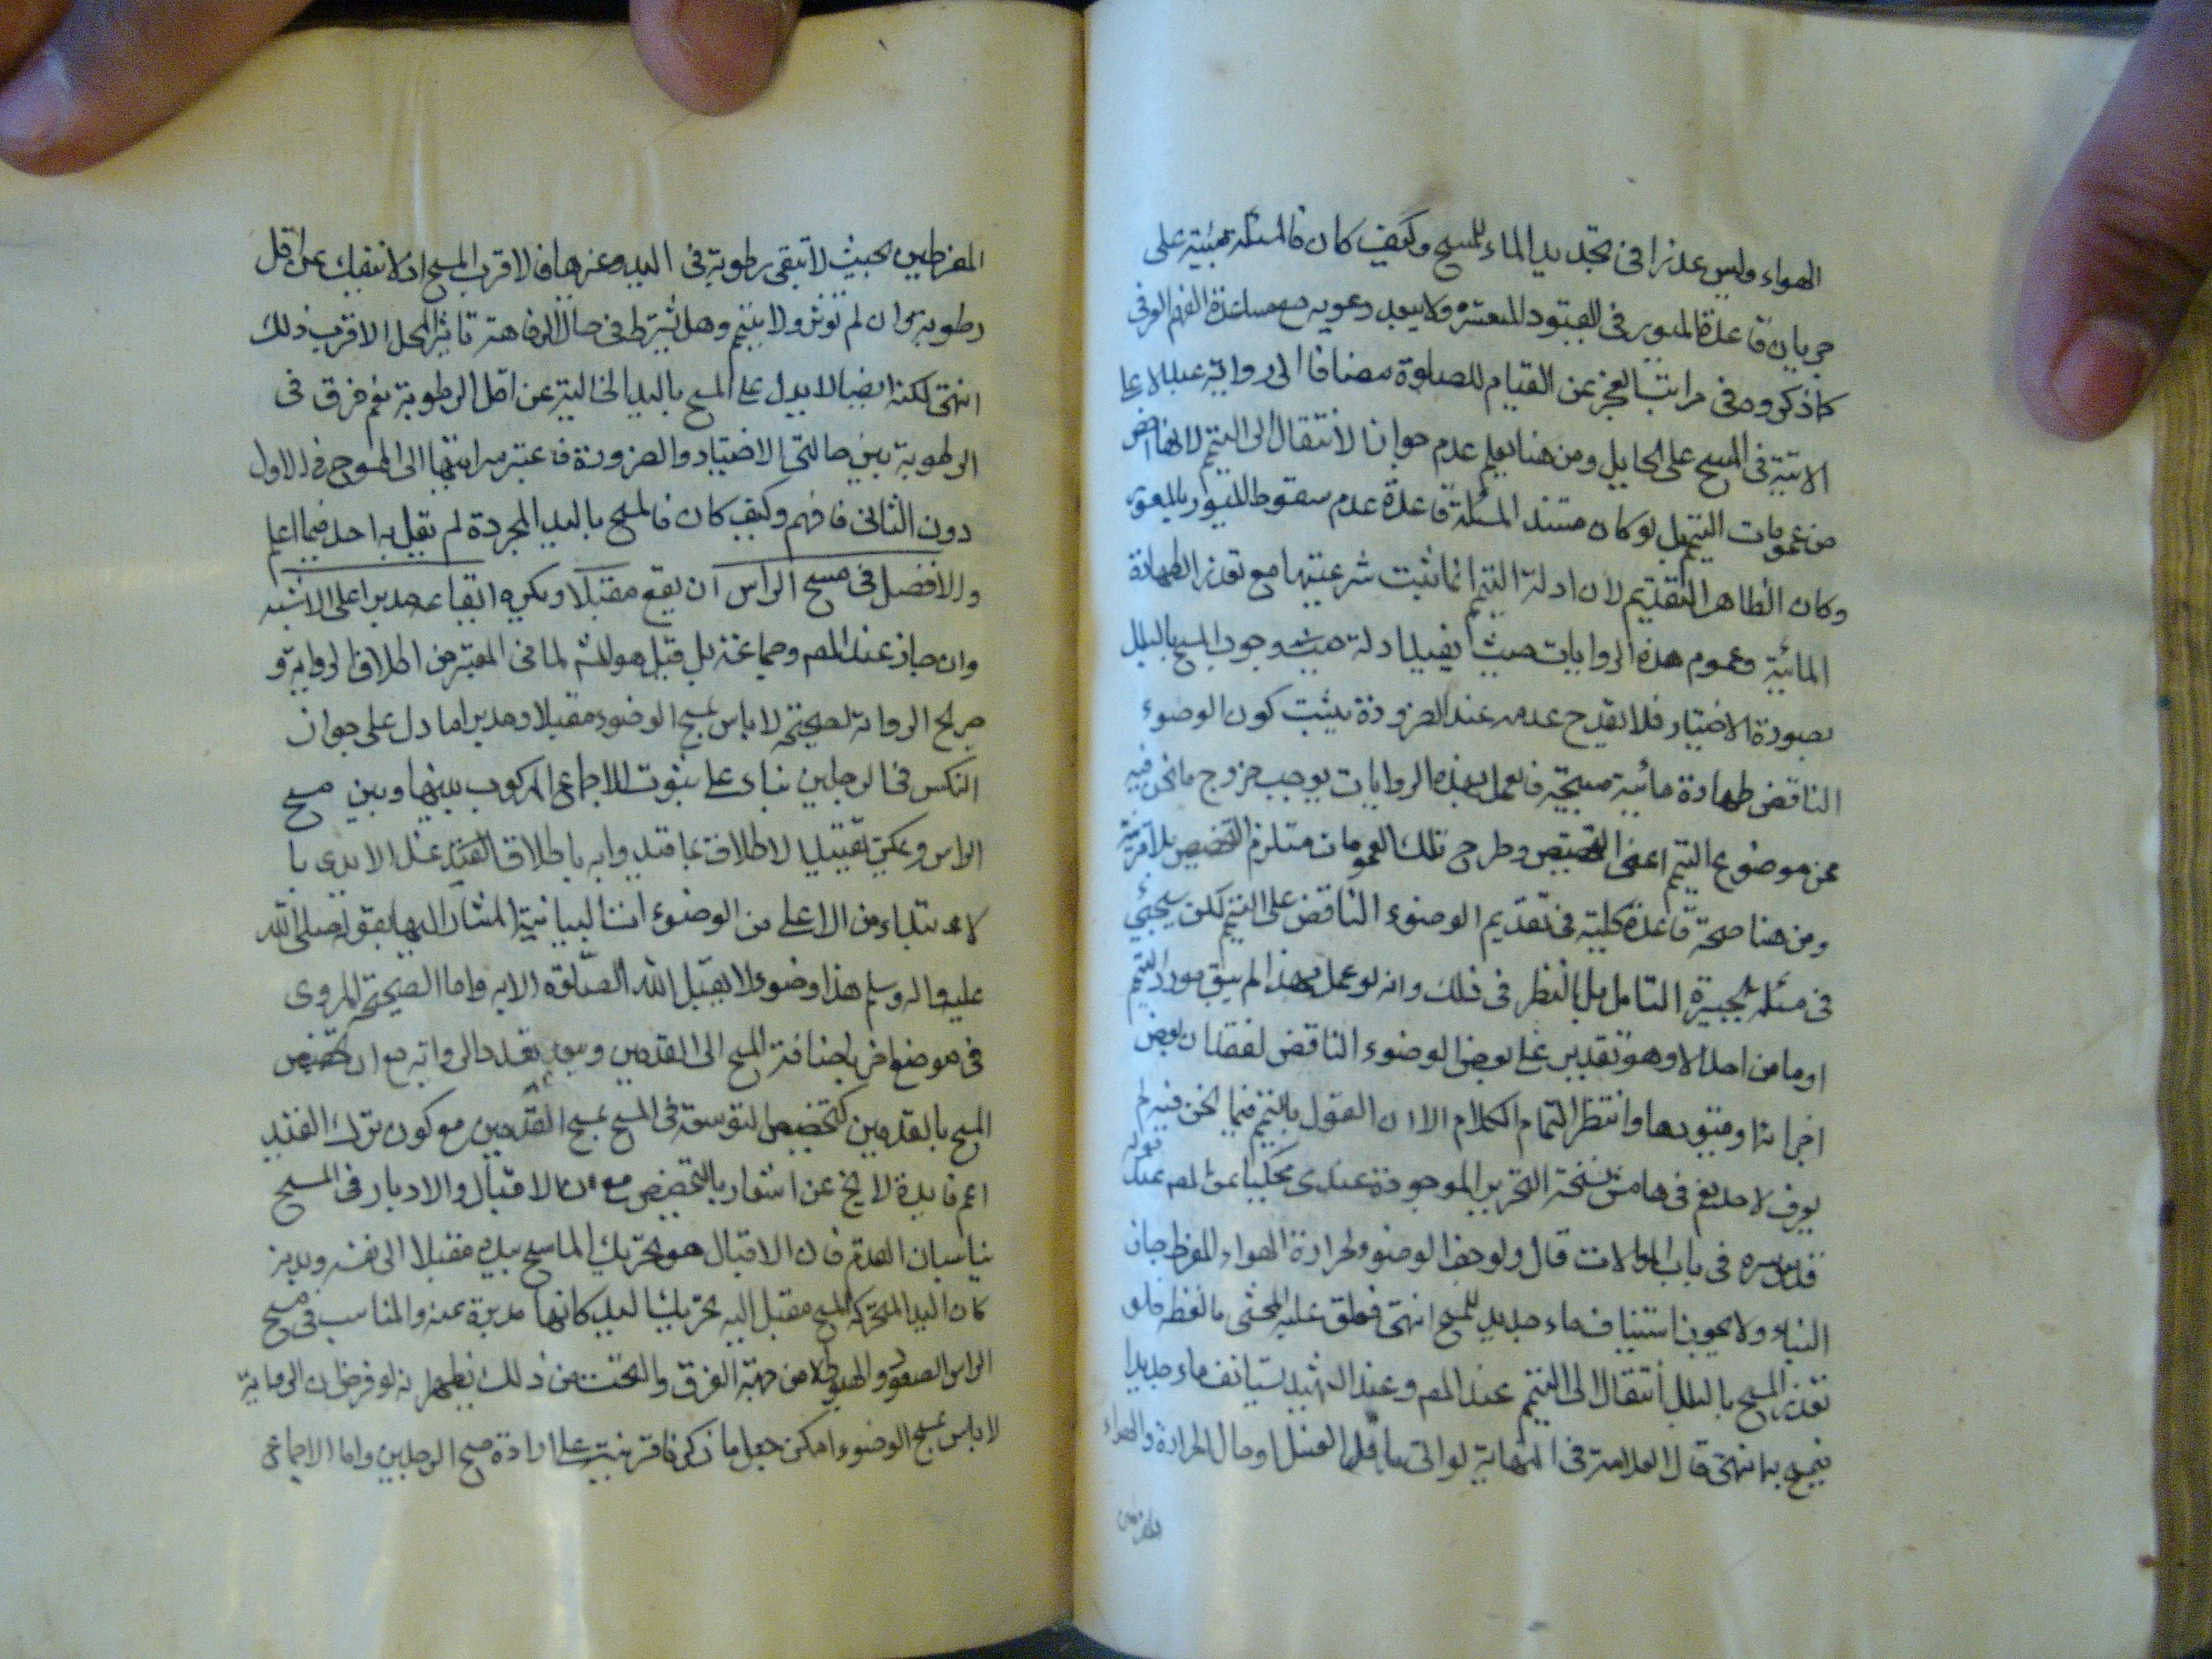 الهواء وليس عذرا فى تجديد الماء للمسح وكيف كان فالمسئلة مبنية على
جريان قاعدة الميسور فى القيود المتعسرة ولا يبعد دعويه مع مساعدة الفهم العرفى
كما ذكروه فى مراتب العجز عن القيام للصلوة مضافا الى رواية عبدالاعلى
الاتية فى المسح على الحايل ومن هنا يعلم عدم جواز الانتقال الى التيمم لانها اخص
من عمومات التيمم بل لو كان مستند المسئلة قاعدة عدم سقوط الميسور بالمعسور
وكان الظاهر التقديم لان ادلة التيمم انما تثبت شرعيتها مع تعذر الطهارة
المائية وعموم هذه الروايات حيث يفيد ادلة وجوب المسح بالبلل
بصورة الاختيار فلا يقدح عدمه عند الضرورة يثبت كون الوضوء
الناقض طهارة مائية صحيحة فالعمل بهذه الروايات يوجب خروج ما نحن فيه
عن موضوع التيمم اعنى وطرح تلك العمومات مستلزم التخصيص بلا قرينة
ومن هنا صحة قاعدة كلية فى تقديم الوضوء الناقض على التيمم لكن سيجئ
فى مسئلة الجبيرة التامل بل النظر فى ذلك وانه لو عمل بهذا لم يبق مورد للتيمم
اذ ما من احد الا وهو تقدير على بعض الوضوء الناقض لفقدان بعض
اجزائه او قيوده وانتظر لتمام الكلام الا ان القول بالتيمم فيما نحن فيه لم
يعرف لاحد نعم فى هامش نسخة التحرير الموجودة عندى محكيا عن المص عند قوله
قدس سره فى باب الموالات قال ولو جف الوضوء لحرارة الهواء المفرط جاز
البناء ولا يجوز استيناف ماء جديد للمسح انتهى فعلق عليه المحشى ما لفظه فلو
تعذر المسح بالبلل انتقل الى التيمم عند المص وعند الشهيد يستانف ماء جديدا
فيمسح به انتهى قال العلامة فى النهاية لو اتى باقل الغسل وحال الحرارة والهواء
المفرطين
المفرطين بحيث لا تبقى رطوبة فى اليد وغيرها فالاقرب المسح اذ لا ينفك عن اقل
رطوبة وان لم تؤثر ولا يتيمم وهل يشترط فى حال الرفاهة تاثير المحل الاقرب ذلك
انتهى لكنه ايضا لا يدل على المسح باليد الخالية عن اقل الرطوبة نعم فرق فى
الرطوبة بين حالتى الاختيار والضرورة فاعتبر سرايتها الى الممسوح فى الاول
دون الثانى فافهم وكيف كان فالمسح باليد المجردة لم يقل به احد فيما اعلم
والافضل فى مسح الراس ان يقع مقبلا ويكره ايقاعه مدبرا على الاشبه
وان جاز عند المص وجماعة بل قيل هو المش لما فى المعتبر من اطلاق الرواية و
صريح الرواية الصحيحة لا باس بمسح الوضوء مقبلا ومدبرا ما دل على جواز
النكس فى الرجلين بناء على ثبوت الاجماع المركوب بينهما وبين مسح
الراس ويمكن تقييد الاطلاق بما قيدوا به باطلاق الفتيد غسل الايدى با
لابتداء من الاعلى من الوضوءات البيانية المشار اليها بقوله صلى الله
عليه واله وسلم هذا وضوء لا يقبل الله الصلوة الا به واما الصحيحة المروى
فى موضع اخر باضافة المسح الى القدمين ويبعد تعدد الرواية مع ان تخصيص
المسح بالقدمين للتوسعة فى المسح بمسح القدمين مع كون ترك القيد
اعم فايدة لا يخ عن اشعار بالتخصيص مع ان الاقبال والادبار فى المسح
يناسبان القدم فان الاقبال هو تحريك الماسح بيده مقبلا الى نفسه ويدبر
كان اليد المتحركة للمسح مقبل اليه بحريك اليد كانها مدبرة عنه والمناسب فى مسح
الراس الصعود والهبوط لا من جهة الفوق والتحت من ذلك يظهر انه لو فرض ان الرواية
لا باس بمسح الوضوء امكن جعل ما ذكرنا قرينة على ارادة مسح الرجلين واما الاجماع